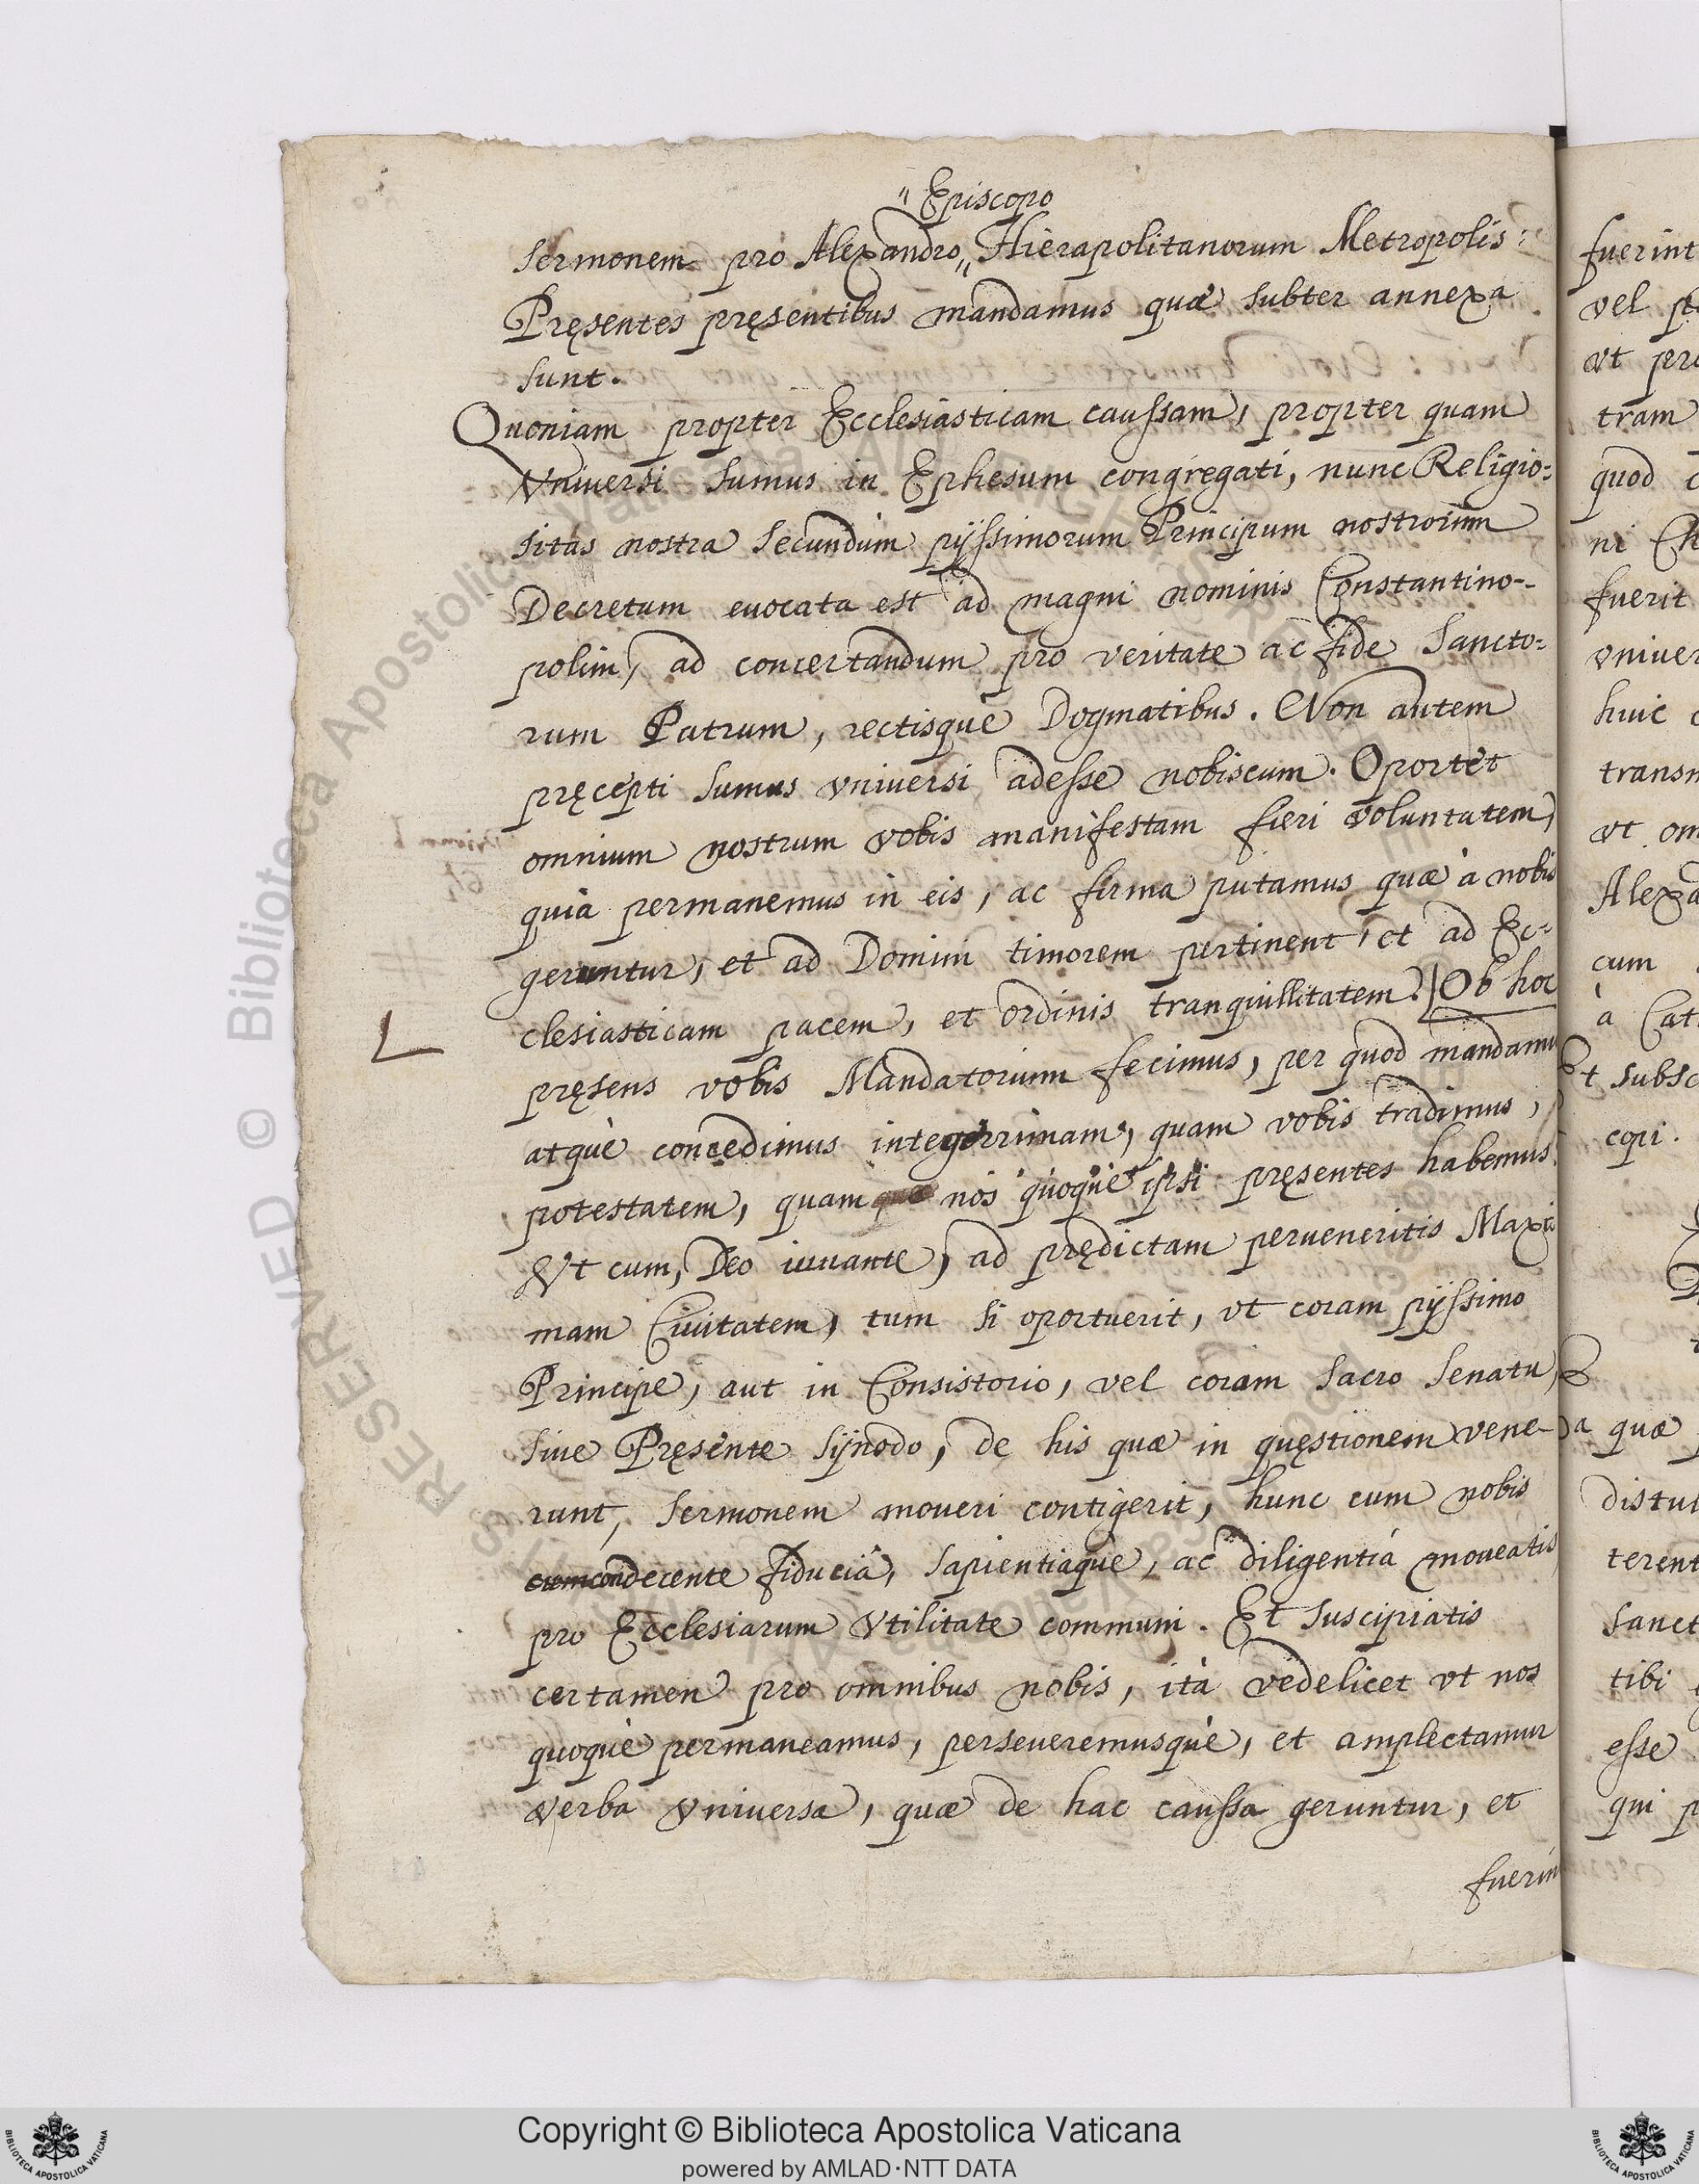 " Episcopo
sermonem pro Alexandro " Hierapolitanorum Metropolis:
Pręsentes pręsentibus mandamus quæ subter annexa
sunt.
Quoniam propter Ecclesiasticam caussam, propter quam
Vniuersi sumus in Ephesum congregati, nunc Religio=
sitas nostra secundum pijssimorum Principum nostrorum
Decretum euocata est ad magni nominis Constantino-
polim, ad concertandum pro veritate ac fide Sancto=
rum Patrum, rectisquè Dogmatibus. Non autem
pręcepti sumus vniuersi adesse nobiscum. Oportet
omnium nostrum vobis manifestam fieri voluntatem,
quia permanemus in eis, ac firma putamus quæ à nobis
geruntur, et ad Domini timorem pertinent, et ad Ec=
clesiasticam pacem, et ordinis tranquillitatem. Ob hoc
pręsens vobis Mandatorium fecimus, per quod mandamu
atquè concedimus integerrimam, quam vobis tradimus,
potestatem, quam nos quoquè ipsi pręsentes habemus.
Vt cum, Deo iuuante, ad prędictam perueneritis Maxi
mam Ciuitatem, tum si oportuerit, vt coram pijssimo
Principe, aut in Consistorio, vel coram Sacro Senatu,
siue Pręsente Synodo, de his quæ in quęstionem vene-
runt, sermonem moueri contigerit, hunc cum nobis
condecente fiducià, sapientiaquè, ac diligentià moueatis
pro Ecclesiarum Vtilitate communi. Et suscipiatis
certamen pro omnibus nobis, ità vedelicet vt nos
quoquè permaneamus, perseueremusquè, et amplectamur
verba vniuersa, quæ de hac caussa geruntur, et
fuerin
fuerint
vel
vt
tram
quod
ni
fuerit
vniuer
huic
transm
vt om
Alexa
cum
à Cat
Et subsc
copi.
a quæ
distul
terent
sanct
tibi
esse
qui p
RESERVED © Biblioteca Apostolica Vaticana
Copyright © Biblioteca Apostolica Vaticana
powered by AMLAD·NTT DATA
BIBLIOTECA APOSTOLICA VATICANA
BIBLIOTECA APOSTOLICA VATICANA